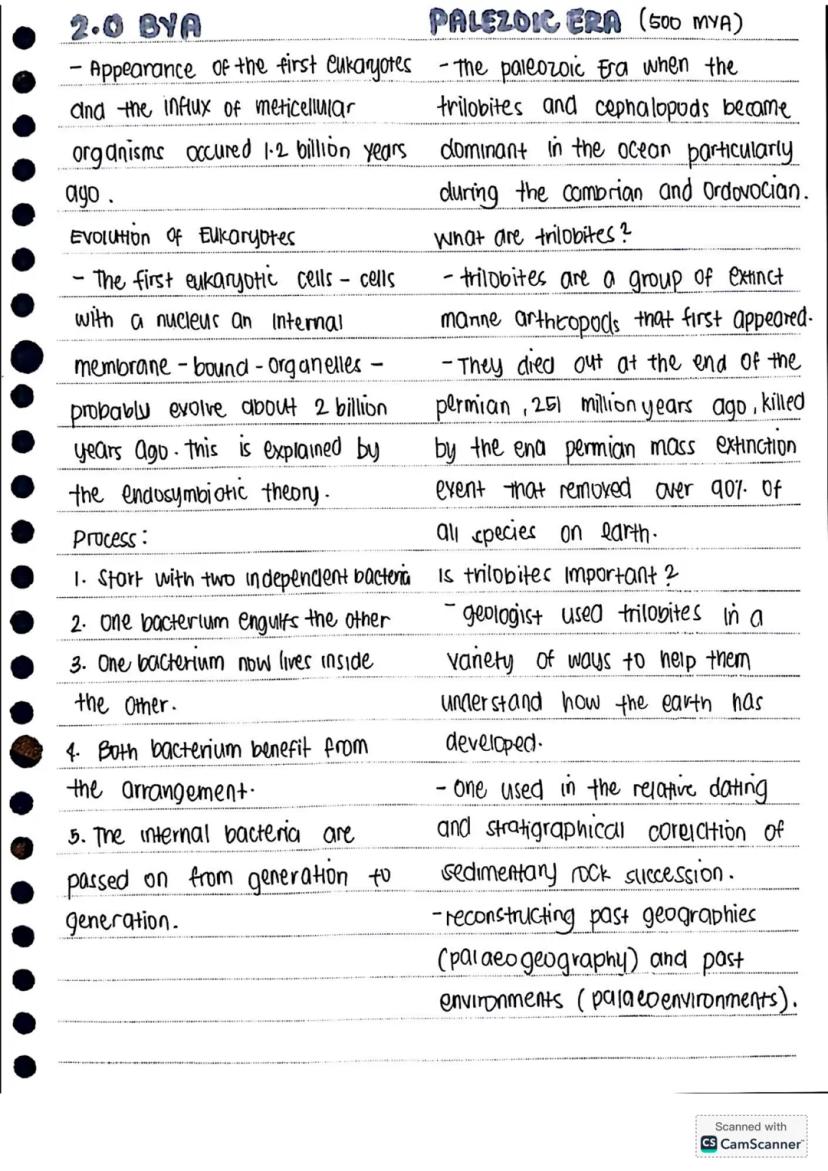 2.0 BYA
- Appearance of the first eukaryotes
and the influx of meticellular
organisms occured 1.2 billion years
ago.
Evolution of Eukaryotes
- The first eukaryotic cells - cells
with a nucleus an internal
membrane - bound - organelles -
probably evolve about 2 billion
years ago. This is explained by
the endosymbiotic theory.
Process:
1. Start with two independent bacteria
2. One bacterium engulfs the other
3. One bacterium now lives inside
the other.
4. Both bacterium benefit from
the arrangement.
5. The internal bacteria are
passed on from generation to
generation.
PALEZOIC ERA (500 MYA)
- The paleozoic Era when the
trilobites and cephalopods became
dominant in the ocean particularly
during the cambrian and Ordovocian.
What are trilobites?
- trilobites are a group of extinct
marine arthropods that first appeared.
- They died out at the end of the
permian, 251 million years ago, killed
by the end permian mass extinction
event that removed over 90% of
all species on earth.
Is trilobites important?
- geologist used trilobites in a
variety of ways to help them
understand how the earth has
developed.
- One used in the relative dating
and stratigraphical corelction of
sedimentary rock succession.
- reconstructing past geographies
(palaeogeography) and past
environments (palaeoenvironments).
Scanned with
CS CamScanner